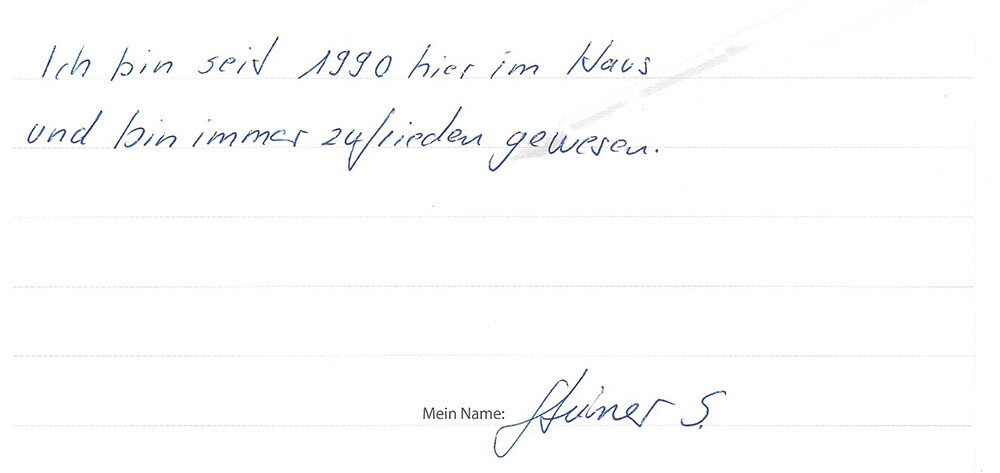 Ich bin seid 1990 hier im Haus
und bin immer zufrieden gewesen.
Mein Name: Steiner S.